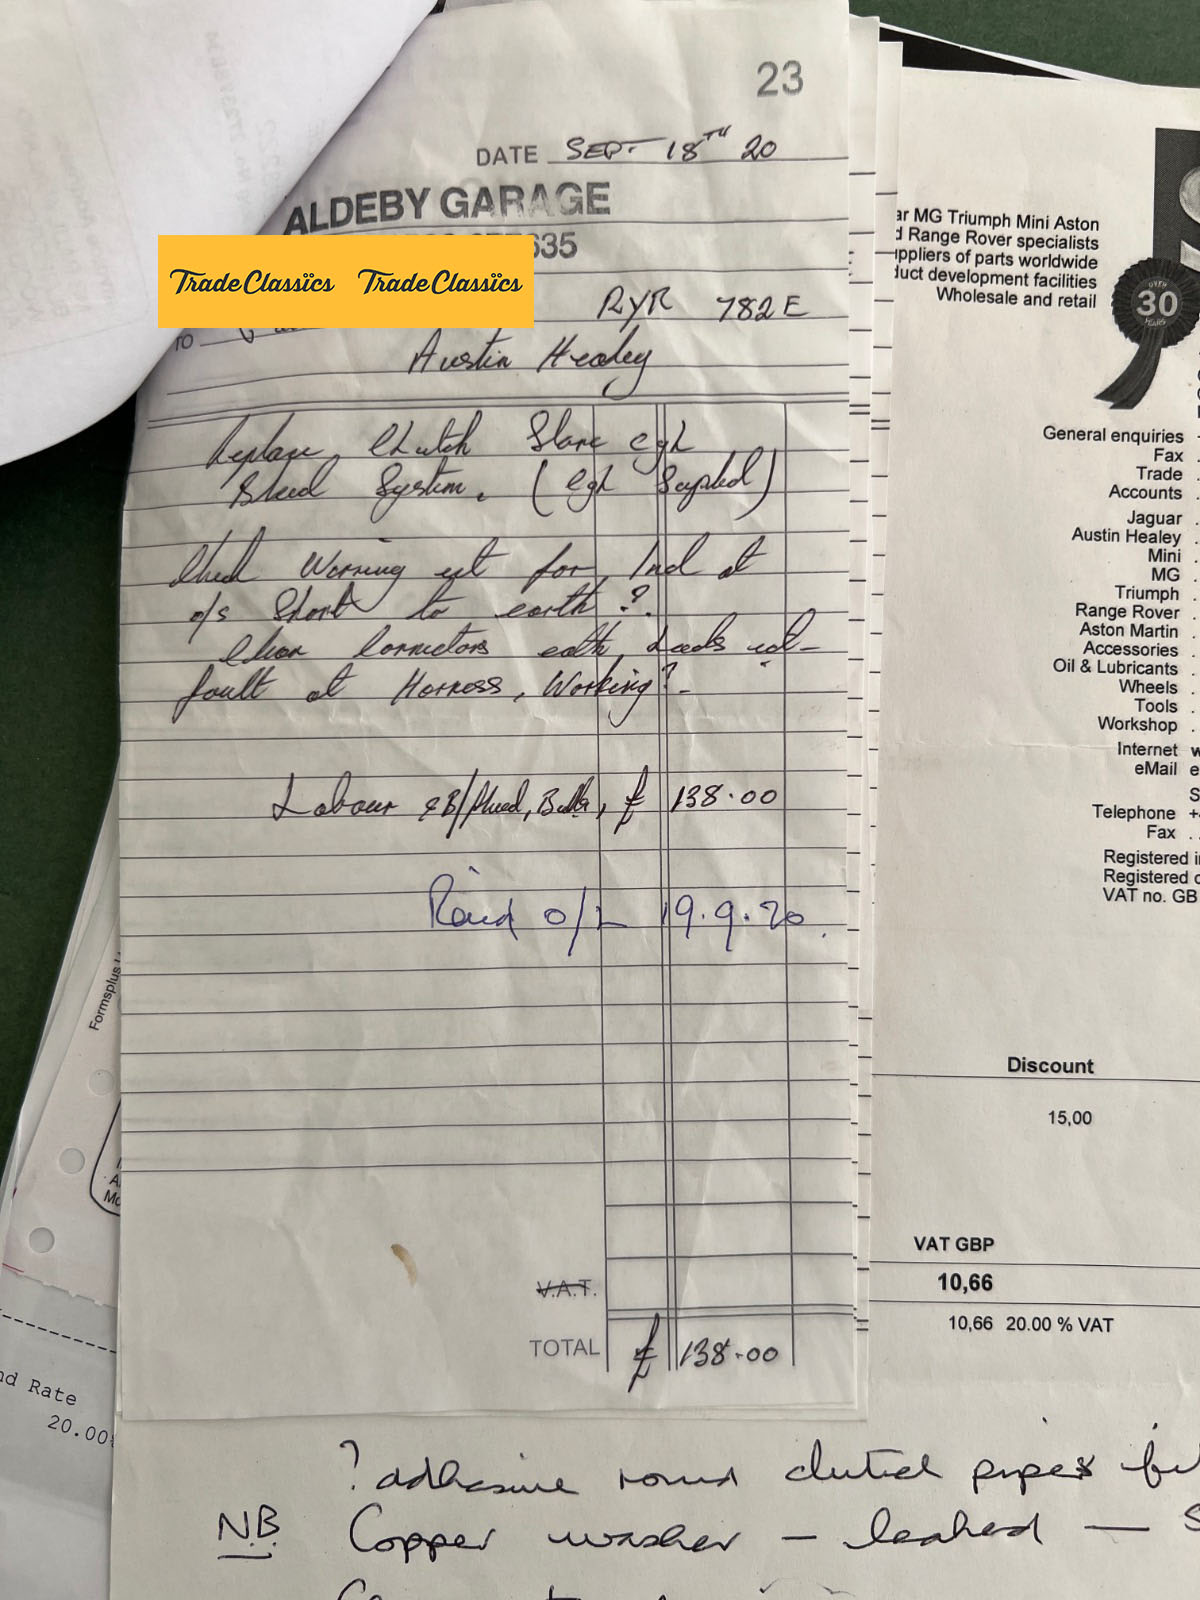 23
DATE SEPT 18TH 20
ALDEBY GARAGE
635
TradeClassics TradeClassics
TO
RYR 782E
Austin Healey
Replace Clutch Slave cyl
Bleed System. (Cyl Supplied)
Check Working cct for Ind at
o/s Short to earth ?.
Clean Connectors earth, Leads cct-
fault at Harness, Working?-
Labour & B/fluid, Bulb, £ 138.00
Paid O/L 19.9.20.
V.A.T.
TOTAL £ 138.00
ar MG Triumph Mini Aston
d Range Rover specialists
uppliers of parts worldwide
duct development facilities
Wholesale and retail
OVER
30
YEARS
General enquiries
Fax
Trade
Accounts
Jaguar
Austin Healey
Mini
MG
Triumph
Range Rover
Aston Martin
Accessories
Oil & Lubricants
Wheels
Tools
Workshop
Internet w
eMail e
S
Telephone +
Fax
Registered i
Registered o
VAT no. GB
Discount
15,00
VAT GBP
10,66
10,66 20.00 % VAT
Formsplus
A
Mo
nd Rate
20.00%
? adhesive round clutch pipes
N.B. Copper washer - leaked -